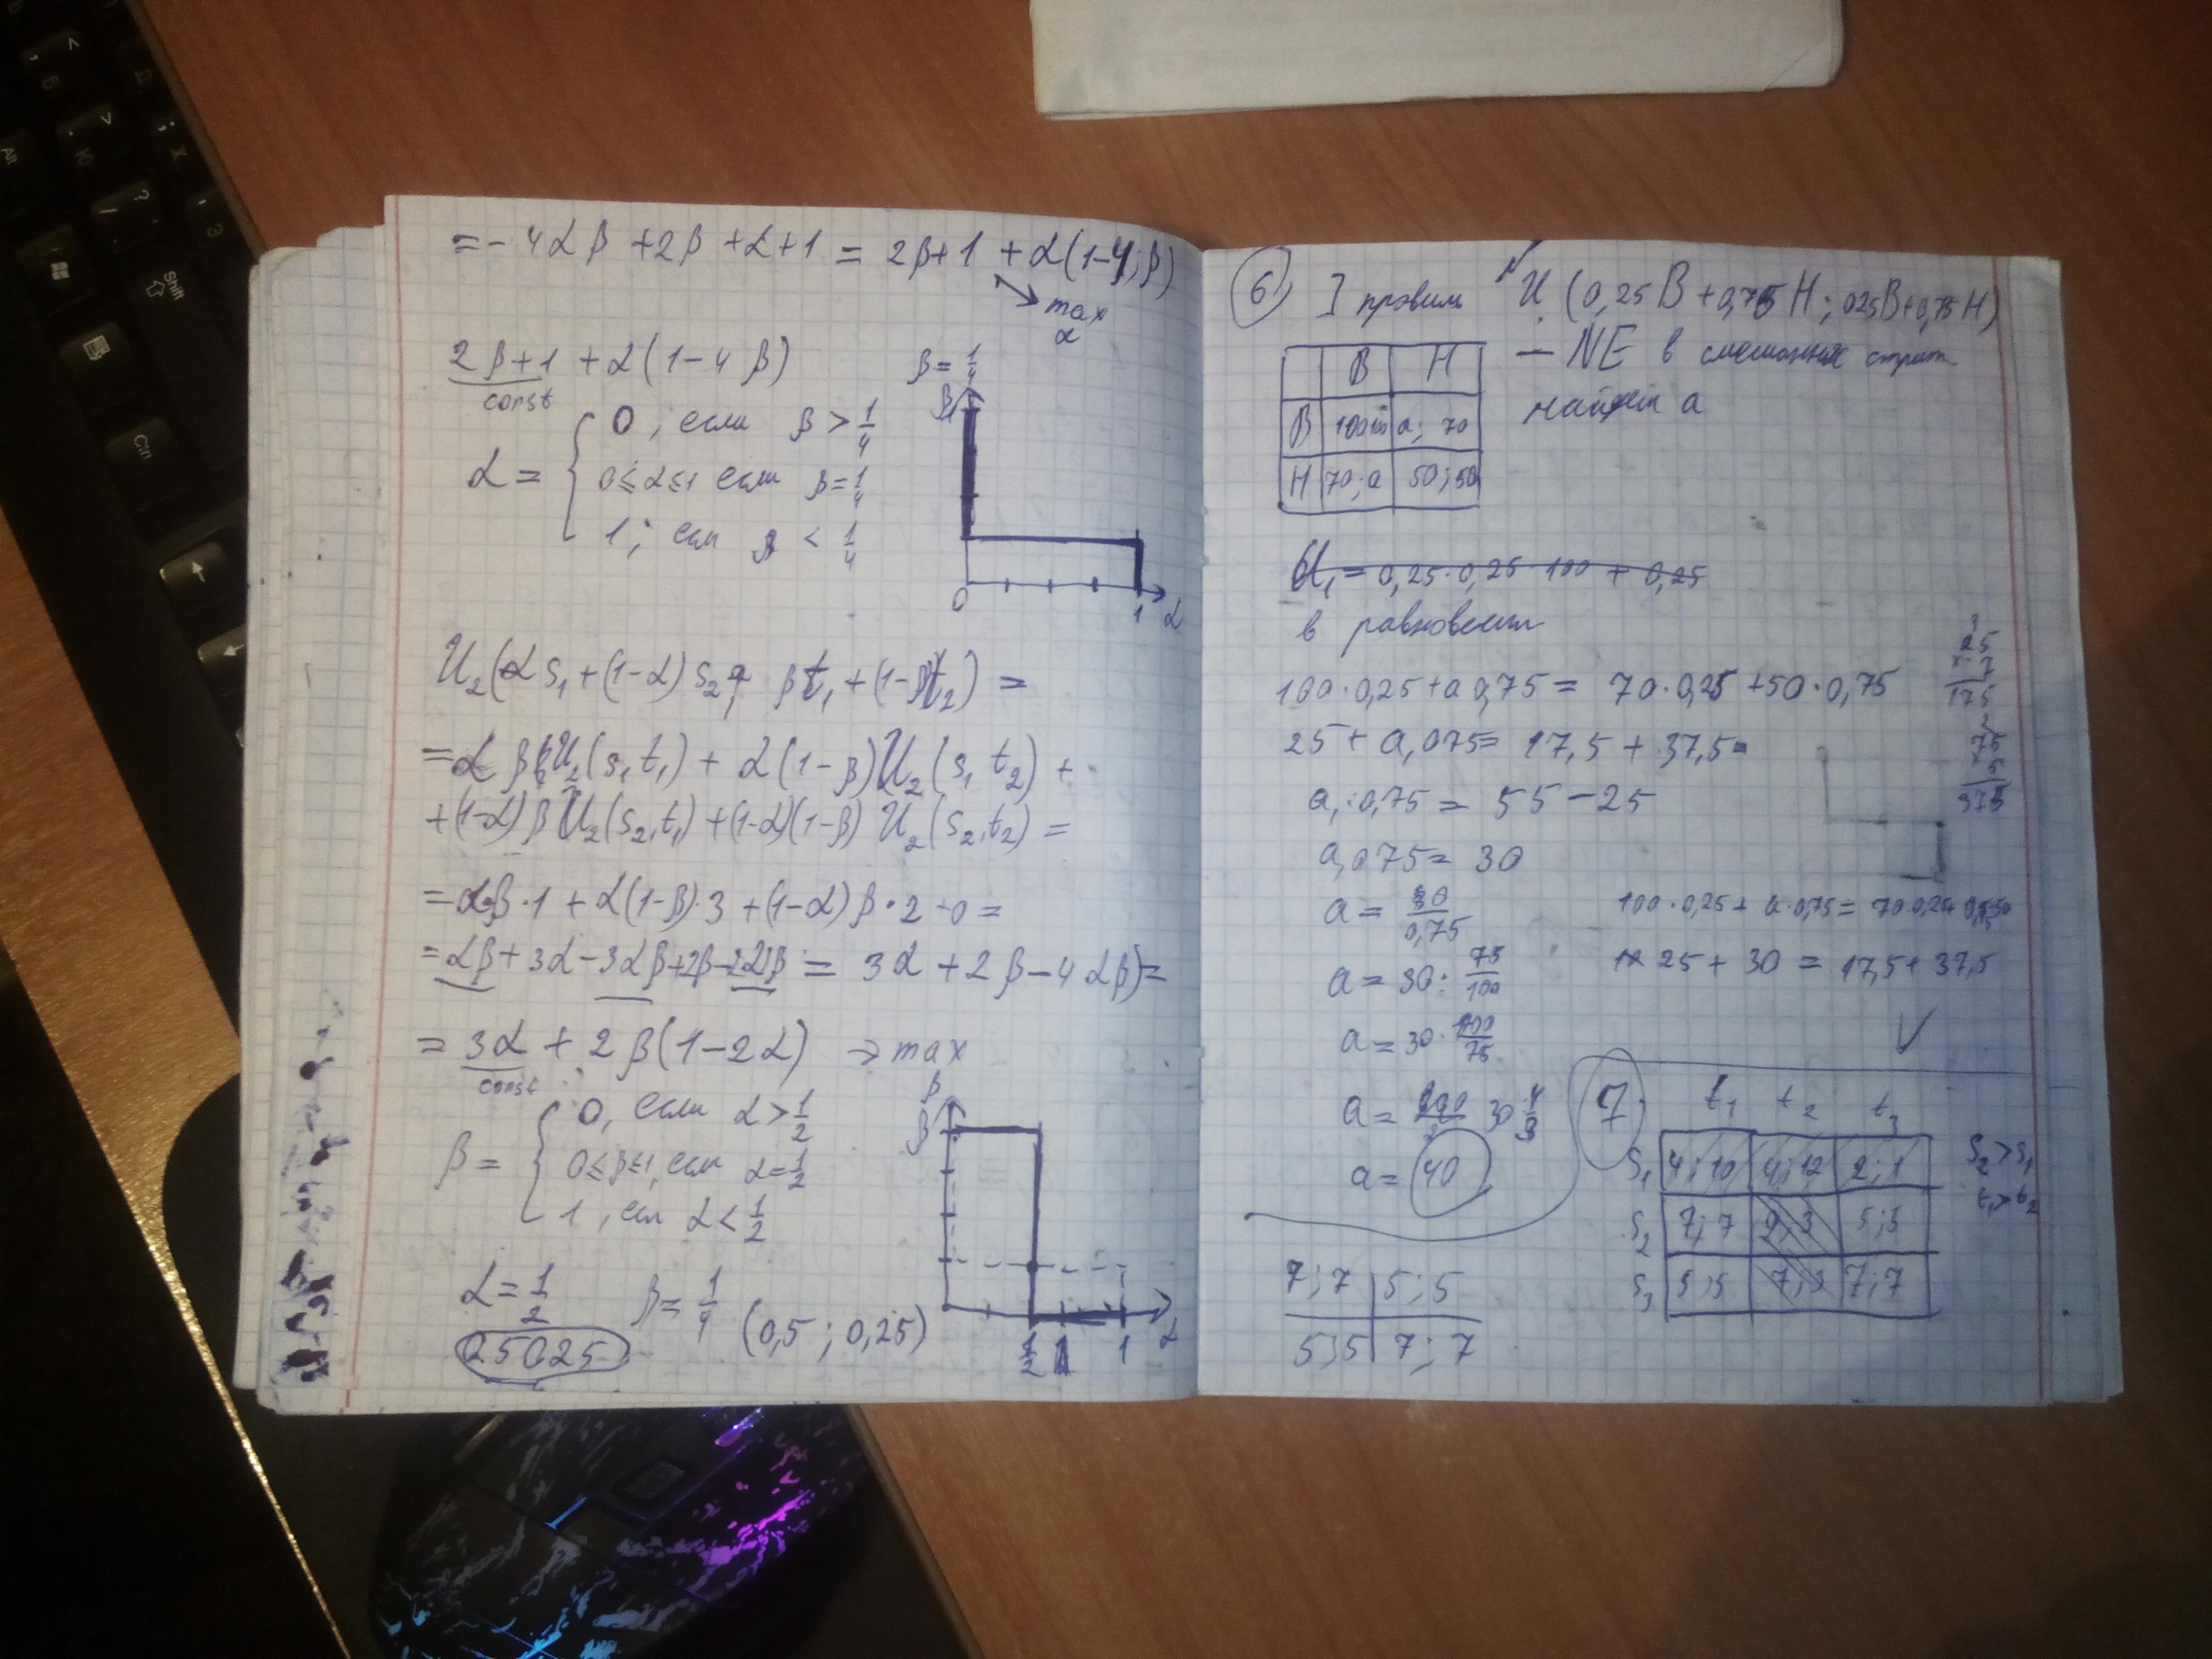 = - 4αβ + 2β + α + 1 = 2β+1 + α(1-4β)
max
α
2β+1 + α(1-4β)
const
α = { 0, если β > 1/4
0≤α≤1 если β = 1/4
1; если β < 1/4
β = 1/4
β
0 1 α
U₂(αs₁+(1-α)s₂, βt₁+(1-β)t₂) =
= αβU₂(s₁t₁) + α(1-β)U₂(s₁t₂) +
+(1-α)βU₂(s₂,t₁)+(1-α)(1-β)U₂(s₂,t₂) =
= αβ·1 + α(1-β)·3 + (1-α)β·2 + 0 =
= αβ + 3α - 3αβ + 2β - 2αβ = 3α + 2β - 4αβ =
= 3α + 2β(1-2α) → max
const
β = { 0, если α > 1/2
0≤β≤1, если α = 1/2
1, если α < 1/2
β
1/2 1 α
α = 1/2 β = 1/4 (0,5 ; 0,25)
25025
6 ] профиль (0,25B+0,75H; 0,25B+0,75H)
— NE в смешанных страт.
найдём a
B H
B 100;100 a; 70
H 70; a 50; 50
U₁ = 0,25·0,25·100 + 0,25
в равновесии
100·0,25+a 0,75 = 70·0,25+50·0,75
25 + a,075 = 17,5 + 37,5
a·0,75 = 55-25
a,075 = 30
a = 30/0,75
a = 30 : 75/100
a = 30 · 100/75
a = 30 4/3
a = 40
25
7
175
75
5
375
100·0,25 + a·0,75 = 70·0,25+
25 + 30 = 17,5 + 37,5
7 t₁ t₂ t₃
s₁ 4; 10 4; 12 2; 1
s₂ 7; 7 5; 5
s₃ 5; 5 7; 7
s₂ > s₁
t₁ > t₂
7; 7 5; 5
5; 5 7; 7
Shift
Ctrl
Alt